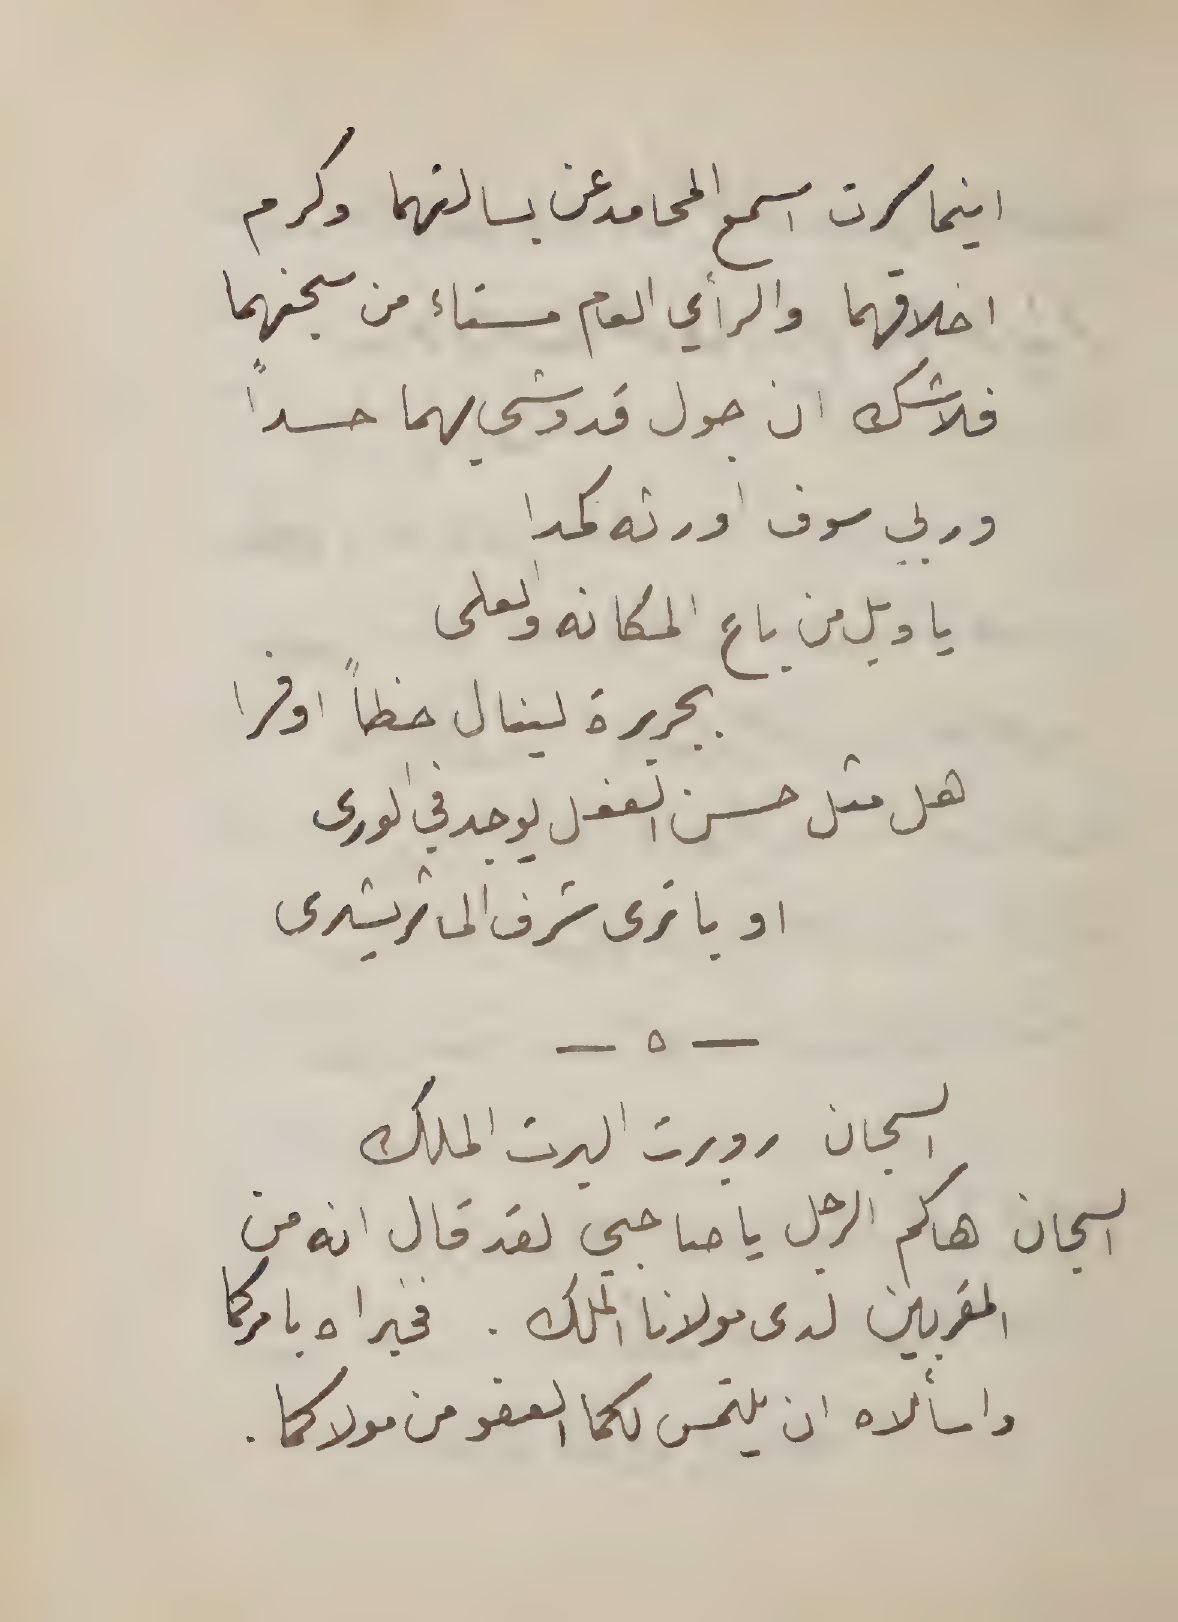 اينما سرت اسمع المحامد عن بسالتهما وكرم
اخلاقهما والرأي العام مستاء من سجنهما
فلا شك ان جول قد وشي بهما حسداً
وربي سوف اورثه كمدا
يا ويل من باع المكانه والعلى
بجريرة لينال حظاً اوفرا
هل مثل حسن الفعل يوجد في الورى
او يا ترى شرف المآثر يشترى
— ٥ —
السجان روبرت البرت الملك
السجان هاكم الرجل يا صاحبي لقد قال انه من
المقربين لدى مولانا الملك . فخبراه بامركما
واسألاه ان يلتمس لكما العفو من مولاكما .